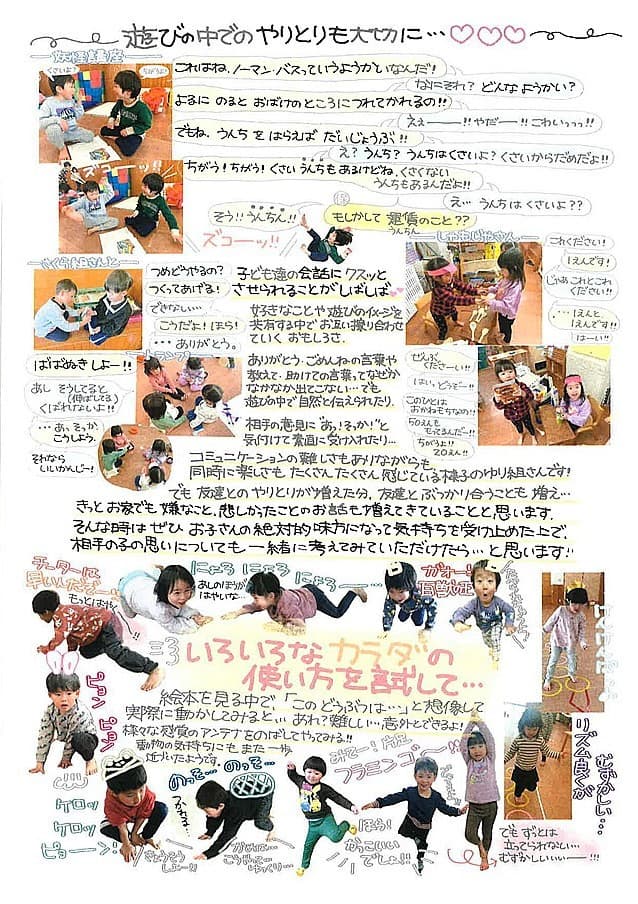 遊びの中でのやりとりも大切に…♡♡♡
妖怪講座
くさいよ?
ちがうよ!
これはね、ノーマン・バスっていうようかいなんだ!
なにそれ? どんなようかい?
よるに のると おばけのところにつれてかれるの!!
えぇーー!! やだーー!! こわいっっっ!!
でもね、うんち を はらえば だいじょうぶ!!
え? うんち? うんちはくさいよ? くさいからだめだよ!!
ちがう! ちがう! くさい うんちもあるけどね、くさくない
うんちもあるんだよ!!
え… うんちは くさいよ??
そう!! うんちん!!
もしかして 運賃のこと??
うんちん
ズコーッ!!
ズコーッ!!
さくら組さんと
つめどうやるの?
つくってあげる!
できない…
こうだよ! ほら!
… ありがとう。
子ども達の会話にクスッと
させられることがしばしば
好きなことや遊びのイメージを
共有する中でお互い擦り合わせ
ていく おもしろさ。
ありがとう・ごめんねの言葉や
教えて・助けての言葉ってなぜか
なかなか出てこない…でも
遊びの中で自然と伝えられたり、
相手の意見に"あっ!そっか!"と
気付けて素直に受け入れたり…
しゃもじやさん
これください!
1えんです!
じゃあこれとこれ
ください!!
…1えんと、
1えんです!!
はーい!!
ぜんぶ
くださーい!!
はい、どうぞー!!
このひとは
おかねもちなの!!
50えんも
もってるんだー!!
ちがうよ!!
20えん!!
トランプ!
ばばぬき しよー!!
あし そうしてると
(伸ばしてる)
くばれないよ!!
…あ、そっか
こうしよう。
それなら
いいかんじー!
コミュニケーションの難しさもありながらも
同時に楽しさも たくさんたくさん 感じている様子のやり組さんです!
でも 友達とのやりとりが増えた分、友達と ぶつかり合うことも 増え…
きっとお家でも嫌なこと、悲しかったことのお話も増えてきていることと思います。
そんな時は ぜひ お子さんの絶対的味方になって気持ちを受け止めた上で、
相手の子の思いについても 一緒に考えてみていただけたら… と思います!!
チーターは
早いんだぞー!!
もっとはやく
にょろ にょろ にょろー
あしのほうが
はやいな…
ガオー!!
百獣の王
いろいろな カラダの
使い方を試して…
絵本を見る中で、「この どうぶつは…」と想像して
実際に動かしてみると…、あれ?難しい…意外とできるよ!
様々な感覚のアンテナをのばしてやってみる!!
動物の気持ちにも また一歩
近づいたようです。
ピョン
ピョン
ケロッ
ケロッ
ピョーン!
きょうそう
しよー!!
のっそ… のっそ…
かめは…
こうやって…
ゆっくり…
みてー! 片足
フラミンゴー!!
ほら!
かっこいい
でしょ!!
リズム良くが
むずかしい…
でも ずっとは
立ってられない…
むずかしいいぃーー!!!